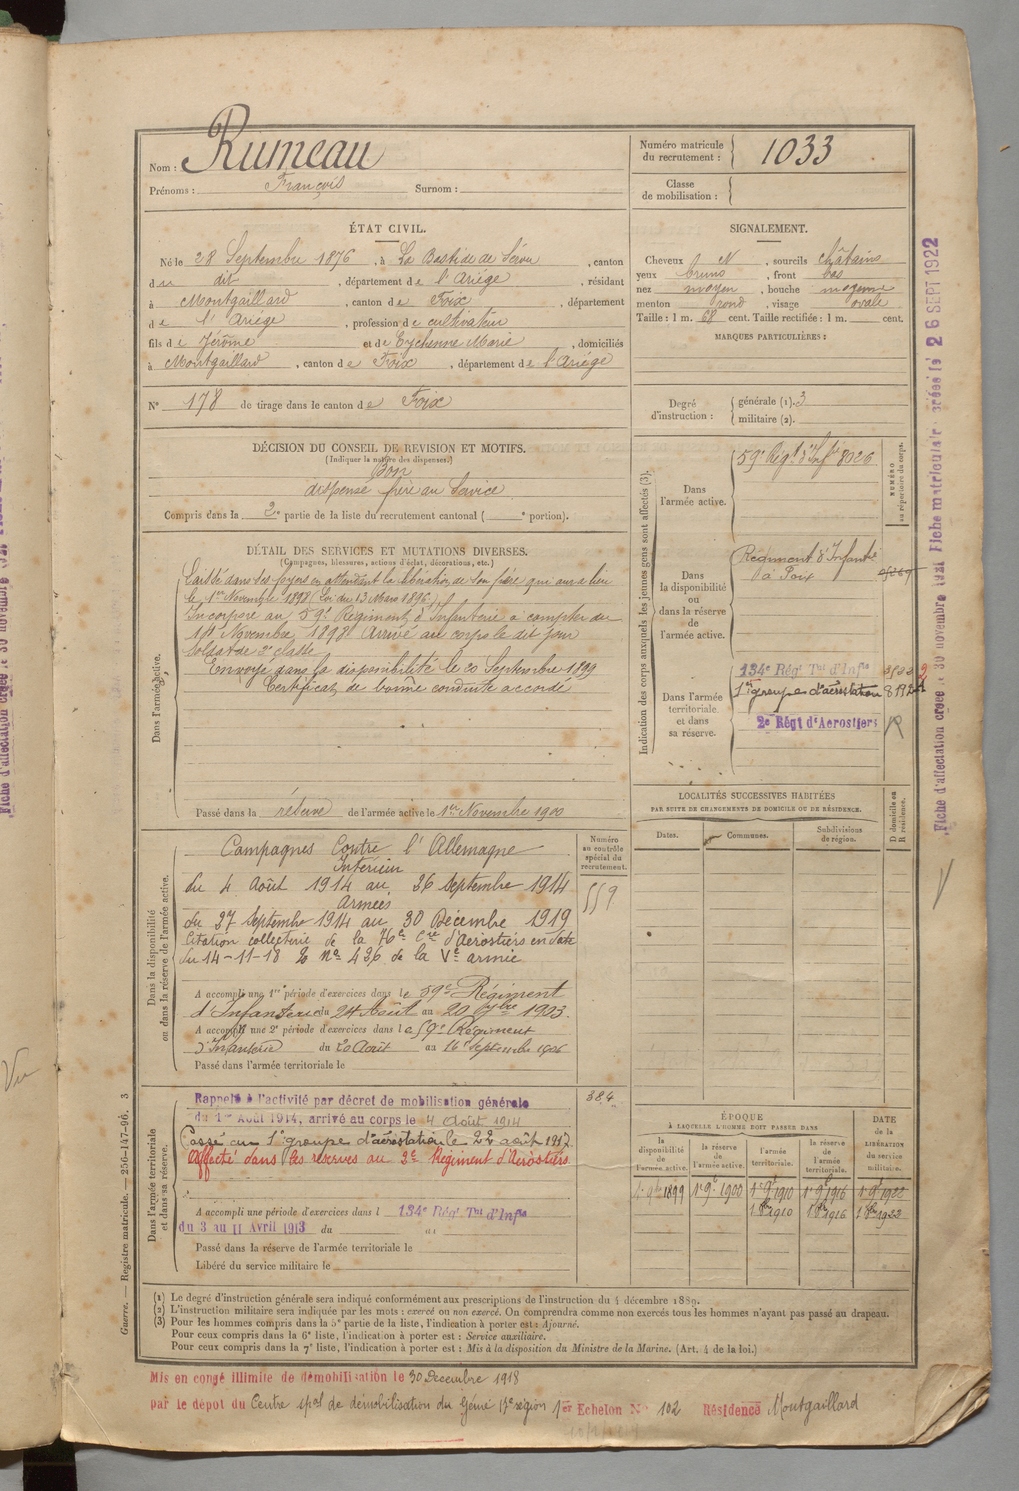 Nom : Rumeau
Prénoms : François Surnom :
Numéro matricule
du recrutement : 1033
Classe
de mobilisation :
ÉTAT CIVIL.
Né le 28 Septembre 1876, à La Bastide de Sérou, canton
du dit, département de l'Ariège, résidant
à Montgaillard, canton de Foix, département
de l'Ariège, profession de cultivateur
fils de Jérôme et de Eychenne Marie, domiciliés
à Montgaillard, canton de Foix, département de l'Ariège
N° 178 de tirage dans le canton de Foix
SIGNALEMENT.
Cheveux N, sourcils châtains
yeux bruns, front bas
nez moyen, bouche moyenne
menton rond, visage ovale
Taille : 1 m. 68 cent. Taille rectifiée : 1 m. cent.
MARQUES PARTICULIÈRES :
Degré
d'instruction :
générale (1). 3
militaire (2).
DÉCISION DU CONSEIL DE REVISION ET MOTIFS.
(Indiquer la nature des dispenses.)
Bon
dispense frère au Service
Compris dans la 2e partie de la liste du recrutement cantonal ( e portion).
DÉTAIL DES SERVICES ET MUTATIONS DIVERSES.
(Campagnes, blessures, actions d'éclat, décorations, etc.)
Dans l'armée active.
Laissé dans ses foyers en attendant la libération de son frère qui aura lieu
le 1er Novembre 1898 (Loi du 13 Mars 1896)
Incorporé au 59e Régiment d'Infanterie à compter du
Novembre 1898 Arrivé au corps le dit jour
Soldat de 2e classe
Envoyé dans la disponibilité le 20 Septembre 1899
Certificat de bonne conduite accordé
Passé dans la réserve de l'armée active le 1er Novembre 1900
Indication des corps auxquels les jeunes gens sont affectés (3).
NUMÉRO
au répertoire du corps.
Dans
l'armée active.
59e Régt d'Infie 8026
Dans
la disponibilité
ou dans
la réserve de
l'armée active.
Régiment d'Infantie
à Foix
Dans l'armée
territoriale
et dans
sa réserve.
134e Régt Tal d'Infie
1er groupe d'aérostation
2e Régt d'Aerostiers
LOCALITÉS SUCCESSIVES HABITÉES
PAR SUITE DE CHANGEMENTS DE DOMICILE OU DE RÉSIDENCE.
Dates.
Communes.
Subdivisions
de région.
D domicile ou
R résidence.
Dans la disponibilité
ou dans la réserve de l'armée active.
Numéro
au contrôle
spécial du
recrutement.
559
Campagnes Contre l'Allemagne
Intérieur
du 4 Août 1914 au 26 Septembre 1914
Armées
du 27 Septembre 1914 au 30 Décembre 1919
Citation collective de la 76e Cie d'Aerostiers en date
du 14-11-18 No 436 de la Ve armée
A accompli une 1re période d'exercices dans le 59e Régiment
d'Infanterie du 24 Août au 20 7bre 1903.
A accompli une 2e période d'exercices dans le 59e Régiment
d'Infanterie du 20 Août au 16 Septembre 1906
Passé dans l'armée territoriale le
Dans l'armée territoriale
et dans sa réserve.
384
Rappelé à l'activité par décret de mobilisation générale
du 1er Août 1914, arrivé au corps le 4 Août 1914
Passé au 1er groupe d'aérostation le 22 août 1917.
Affecté dans les réserves au 2e Régiment d'Aérostiers
A accompli une période d'exercices dans l 134e Régt Tal d'Infie
du 3 au 11 Avril 1913 du au
Passé dans la réserve de l'armée territoriale le
Libéré du service militaire le
ÉPOQUE
À LAQUELLE L'HOMME DOIT PASSER DANS
la
disponibilité
de
l'armée active.
la réserve
de
l'armée active.
l'armée
territoriale.
la réserve
de
l'armée
territoriale.
DATE
de la
LIBÉRATION
du service
militaire.
1er 9bre 1899 1er 9e 1900 1er 9e 1910 1er 9e 1916 1er 9e 1922
1er 8bre 1910 1er 8bre 1916 1er 8bre 1922
(1) Le degré d'instruction générale sera indiqué conformément aux prescriptions de l'instruction du 4 décembre 1889.
(2) L'instruction militaire sera indiquée par les mots : exercé ou non exercé. On comprendra comme non exercés tous les hommes n'ayant pas passé au drapeau.
(3) Pour les hommes compris dans la 5e partie de la liste, l'indication à porter est : Ajourné.
Pour ceux compris dans la 6e liste, l'indication à porter est : Service auxiliaire.
Pour ceux compris dans la 7e liste, l'indication à porter est : Mis à la disposition du Ministre de la Marine. (Art. 4 de la loi.)
Guerre. — Registre matricule. — 256-147-96. 3
Mis en congé illimité de démobilisation le 30 Decembre 1918
par le dépôt du Centre spal de démobilisation du Génie 17e région 1er Echelon N° 102 Résidence Montgaillard
Fiche d'affectation créée le 30 novembre 1921 Fiche matriculaire créée le 26 SEPT 1922